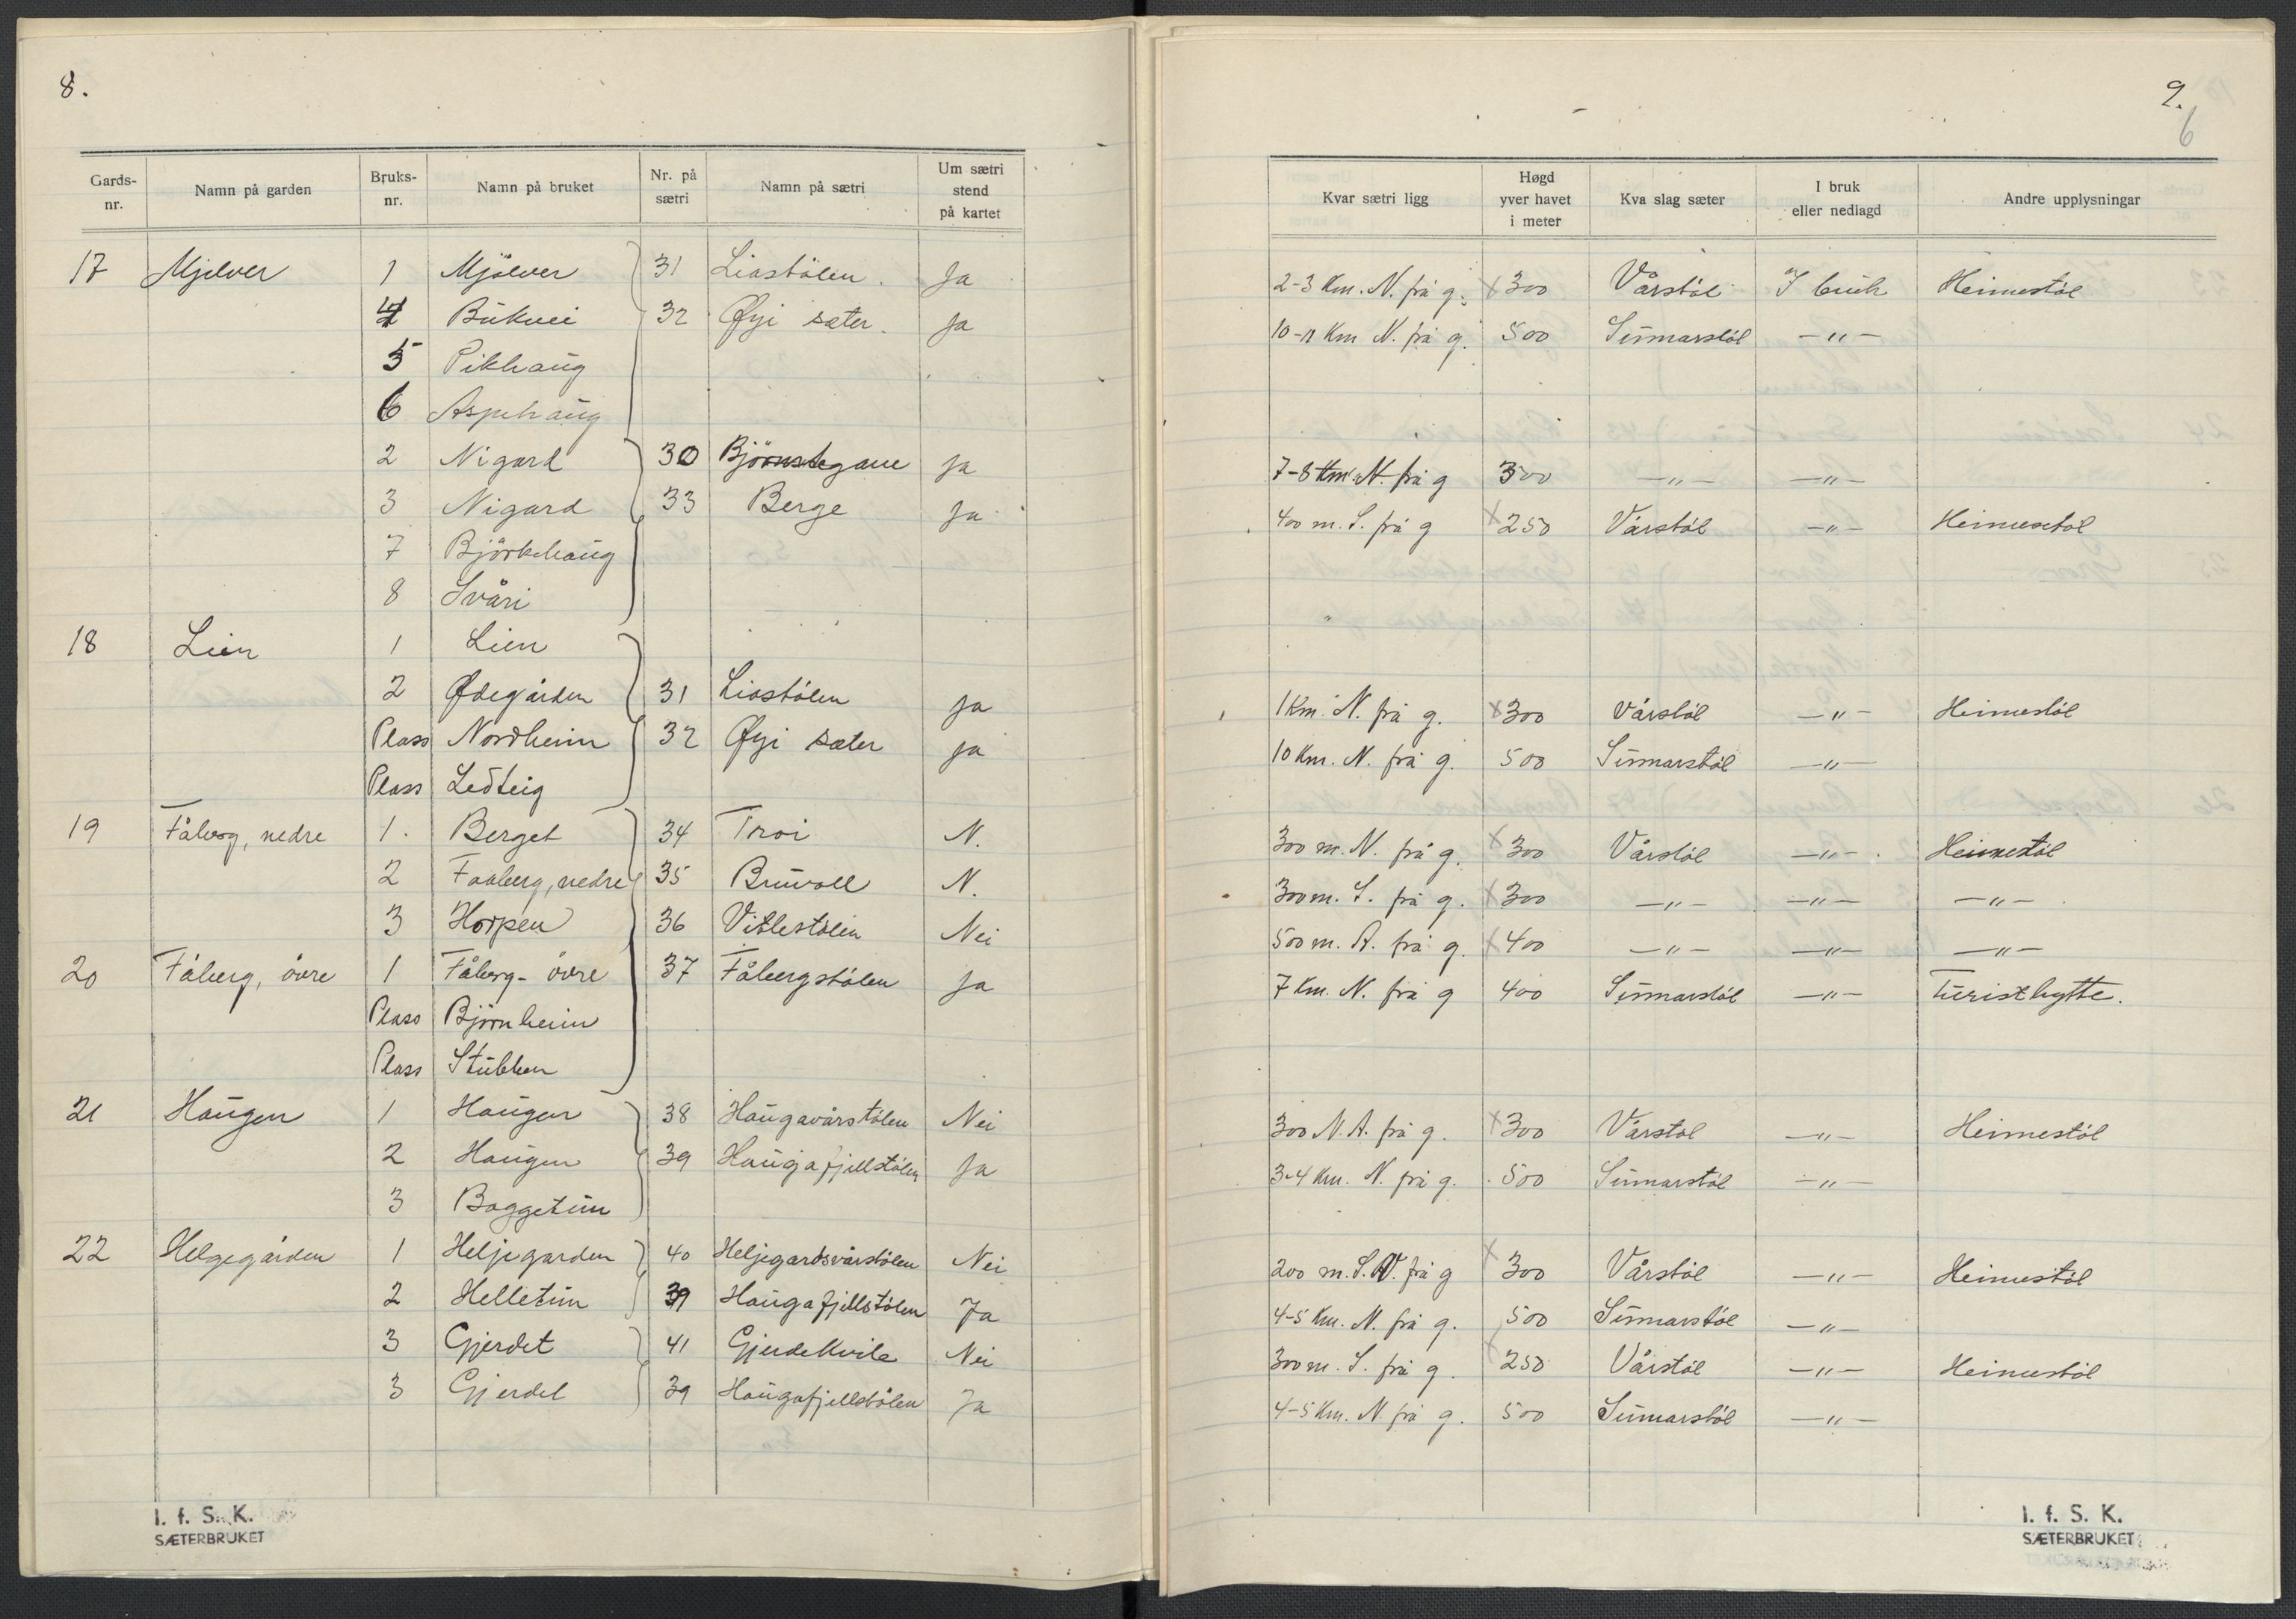 8.
Gards-nr. Namn på garden Bruks-nr. Namn på bruket Nr. på sætri Namn på sætri Um sætri stend på kartet
17 Mjelver 1 Mjölver 31 Liastölen. Ja
4 Bukvei 32 Øyi sæter. Ja
5 Pikhaug
6 Aspehaug
2 Nigard 30 Björnstegane Ja
3 Nigard 33 Berge Ja
7 Björkehaug
8 Svåri
18 Lien 1 Lien
2 Ødegården 31 Liastölen Ja
Plass Nordheim 32 Øyi sæter Ja
Plass Ledteig
19 Fåberg, nedre 1. Berget 34 Troi N.
2 Faaberg, nedre 35 Bruvoll N.
3 Horpen 36 Vitlestölen Nei
20 Fåberg, övre 1 Fåberg- övre 37 Fåbergstölen Ja
Plass Björnheim
Plass Stubben
21 Haugen 1 Haugen 38 Haugavårstölen Nei
2 Haugen 39 Haugafjellstölen Ja
3 Baggetun
22 Helgegården 1 Heljegarden 40 Heljegardsvårstölen Nei
2 Helletun 39 Haugafjellstölen Ja
3 Gjerdet 41 Gjerdekvile Nei
3 Gjerdet 39 Haugafjellstölen Ja
I. f. S. K.
SÆTERBRUKET
9.
6
Kvar sætri ligg Høgd yver havet i meter Kva slag sæter I bruk eller nedlagd Andre upplysningar
2-3 Km. N. frå g. x 300 Vårstöl I bruk Heimestöl
10-11 Km N. frå g. 500 Sumarstöl -"-
7-8 Km. N. frå g 300 -"- -"-
400 m. S. frå g x 250 Vårstöl -"- Heimestöl
1 Km. N. frå g. x 300 Vårstöl -"- Heimestöl
10 Km. N. frå g. 500 Sumarstöl -"-
300 m. N. frå g. x 300 Vårstöl -"- Heimestöl
300 m. S. frå g. x 300 -"- -"- -"-
500 m. A. frå g. x 400 -"- -"- -"-
7 Km. N. frå g 400 Sumarstöl -"- Turisthytte.
300 N. A. frå g. x 300 Vårstöl -"- Heimestöl
3-4 Km. N. frå g. 500 Sumarstöl -"-
200 m. S. V. frå g x 300 Vårstöl -"- Heimestöl
4-5 Km. N. frå g. 500 Sumarstöl -"-
300 m. S. frå g. x 250 Vårstöl -"- Heimestöl
4-5 Km. N frå g. 500 Sumarstöl -"-
I. f. S. K.
SÆTERBRUKET